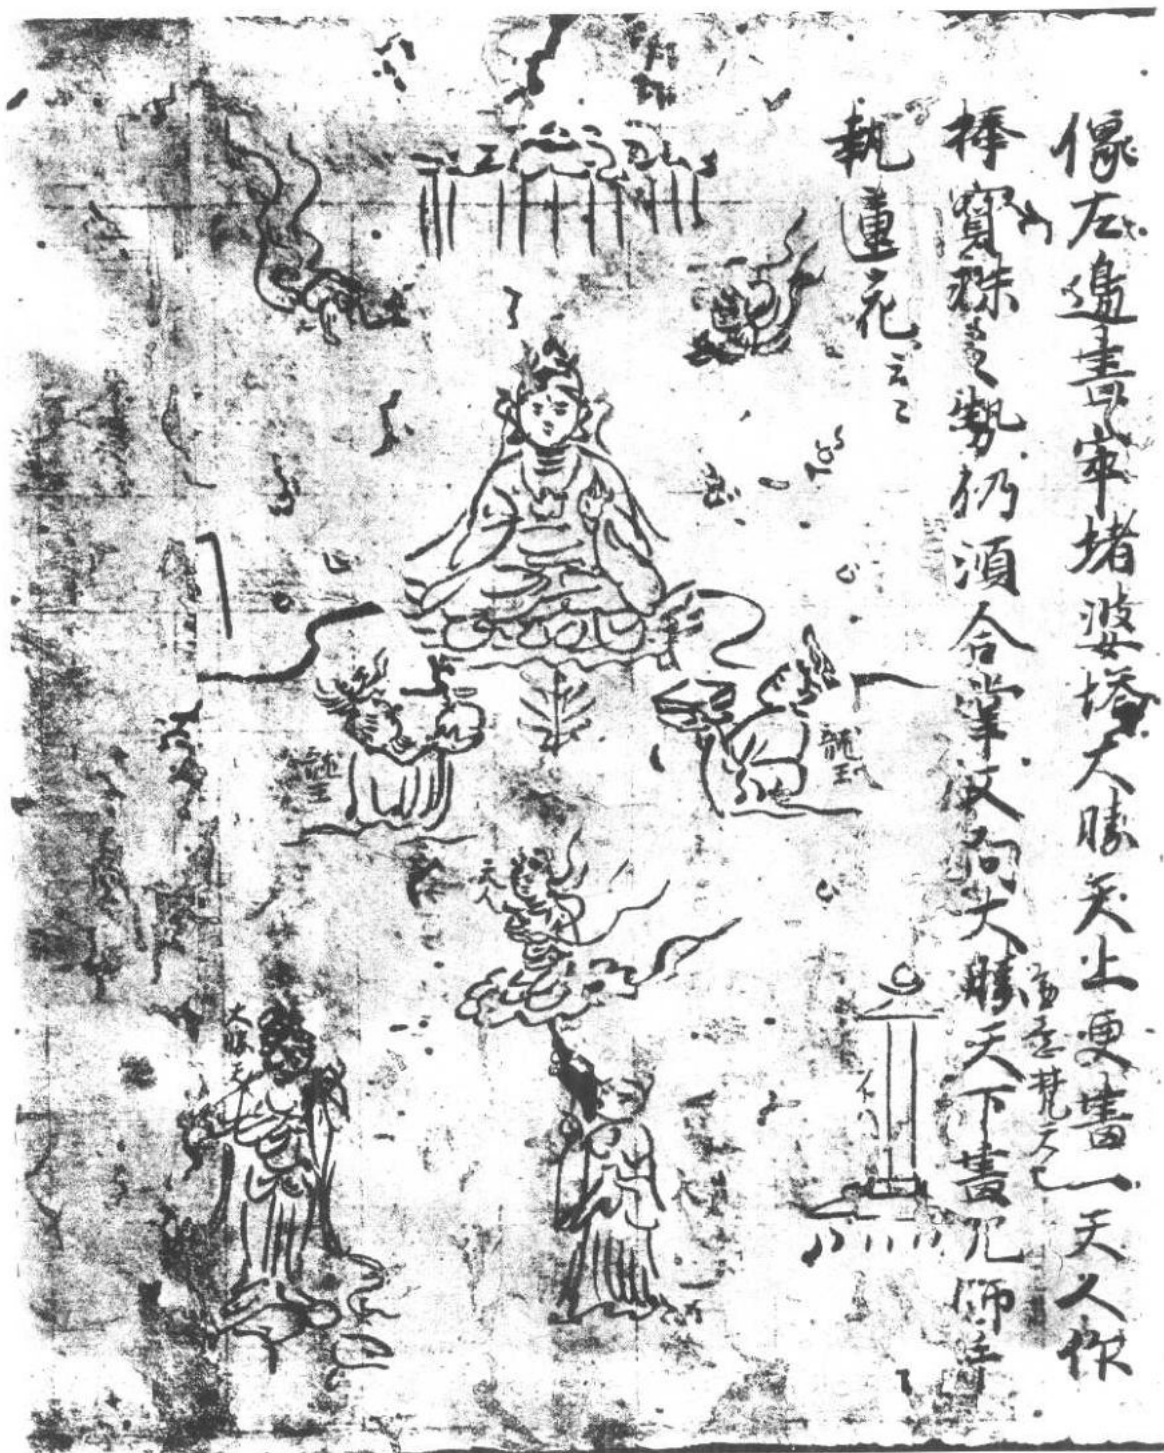 像左邊畫窣堵婆塔大勝天上更畫一天人作
捧寶珠之勢仍須合掌又向大勝天下畫咒師手
執蓮花云々
梵天
龍王
龍王
天人
大勝天